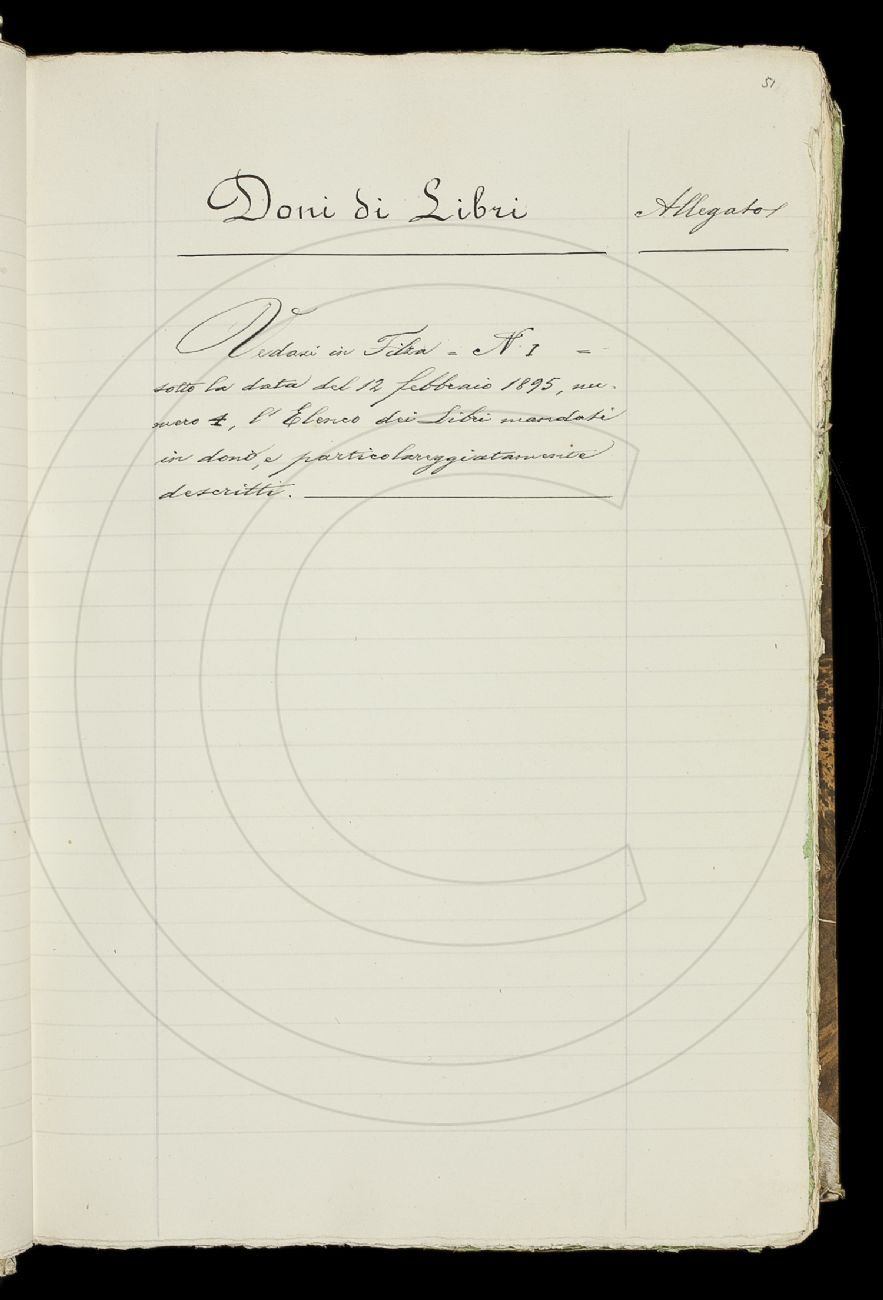 51
Doni di Libri
Allegato
Vedasi in Filza = N. I =
sotto la data del 12 febbraio 1895, nu-
mero 4, l'Elenco dei Libri mandati
in dono, e particolareggiatamente
descritti.